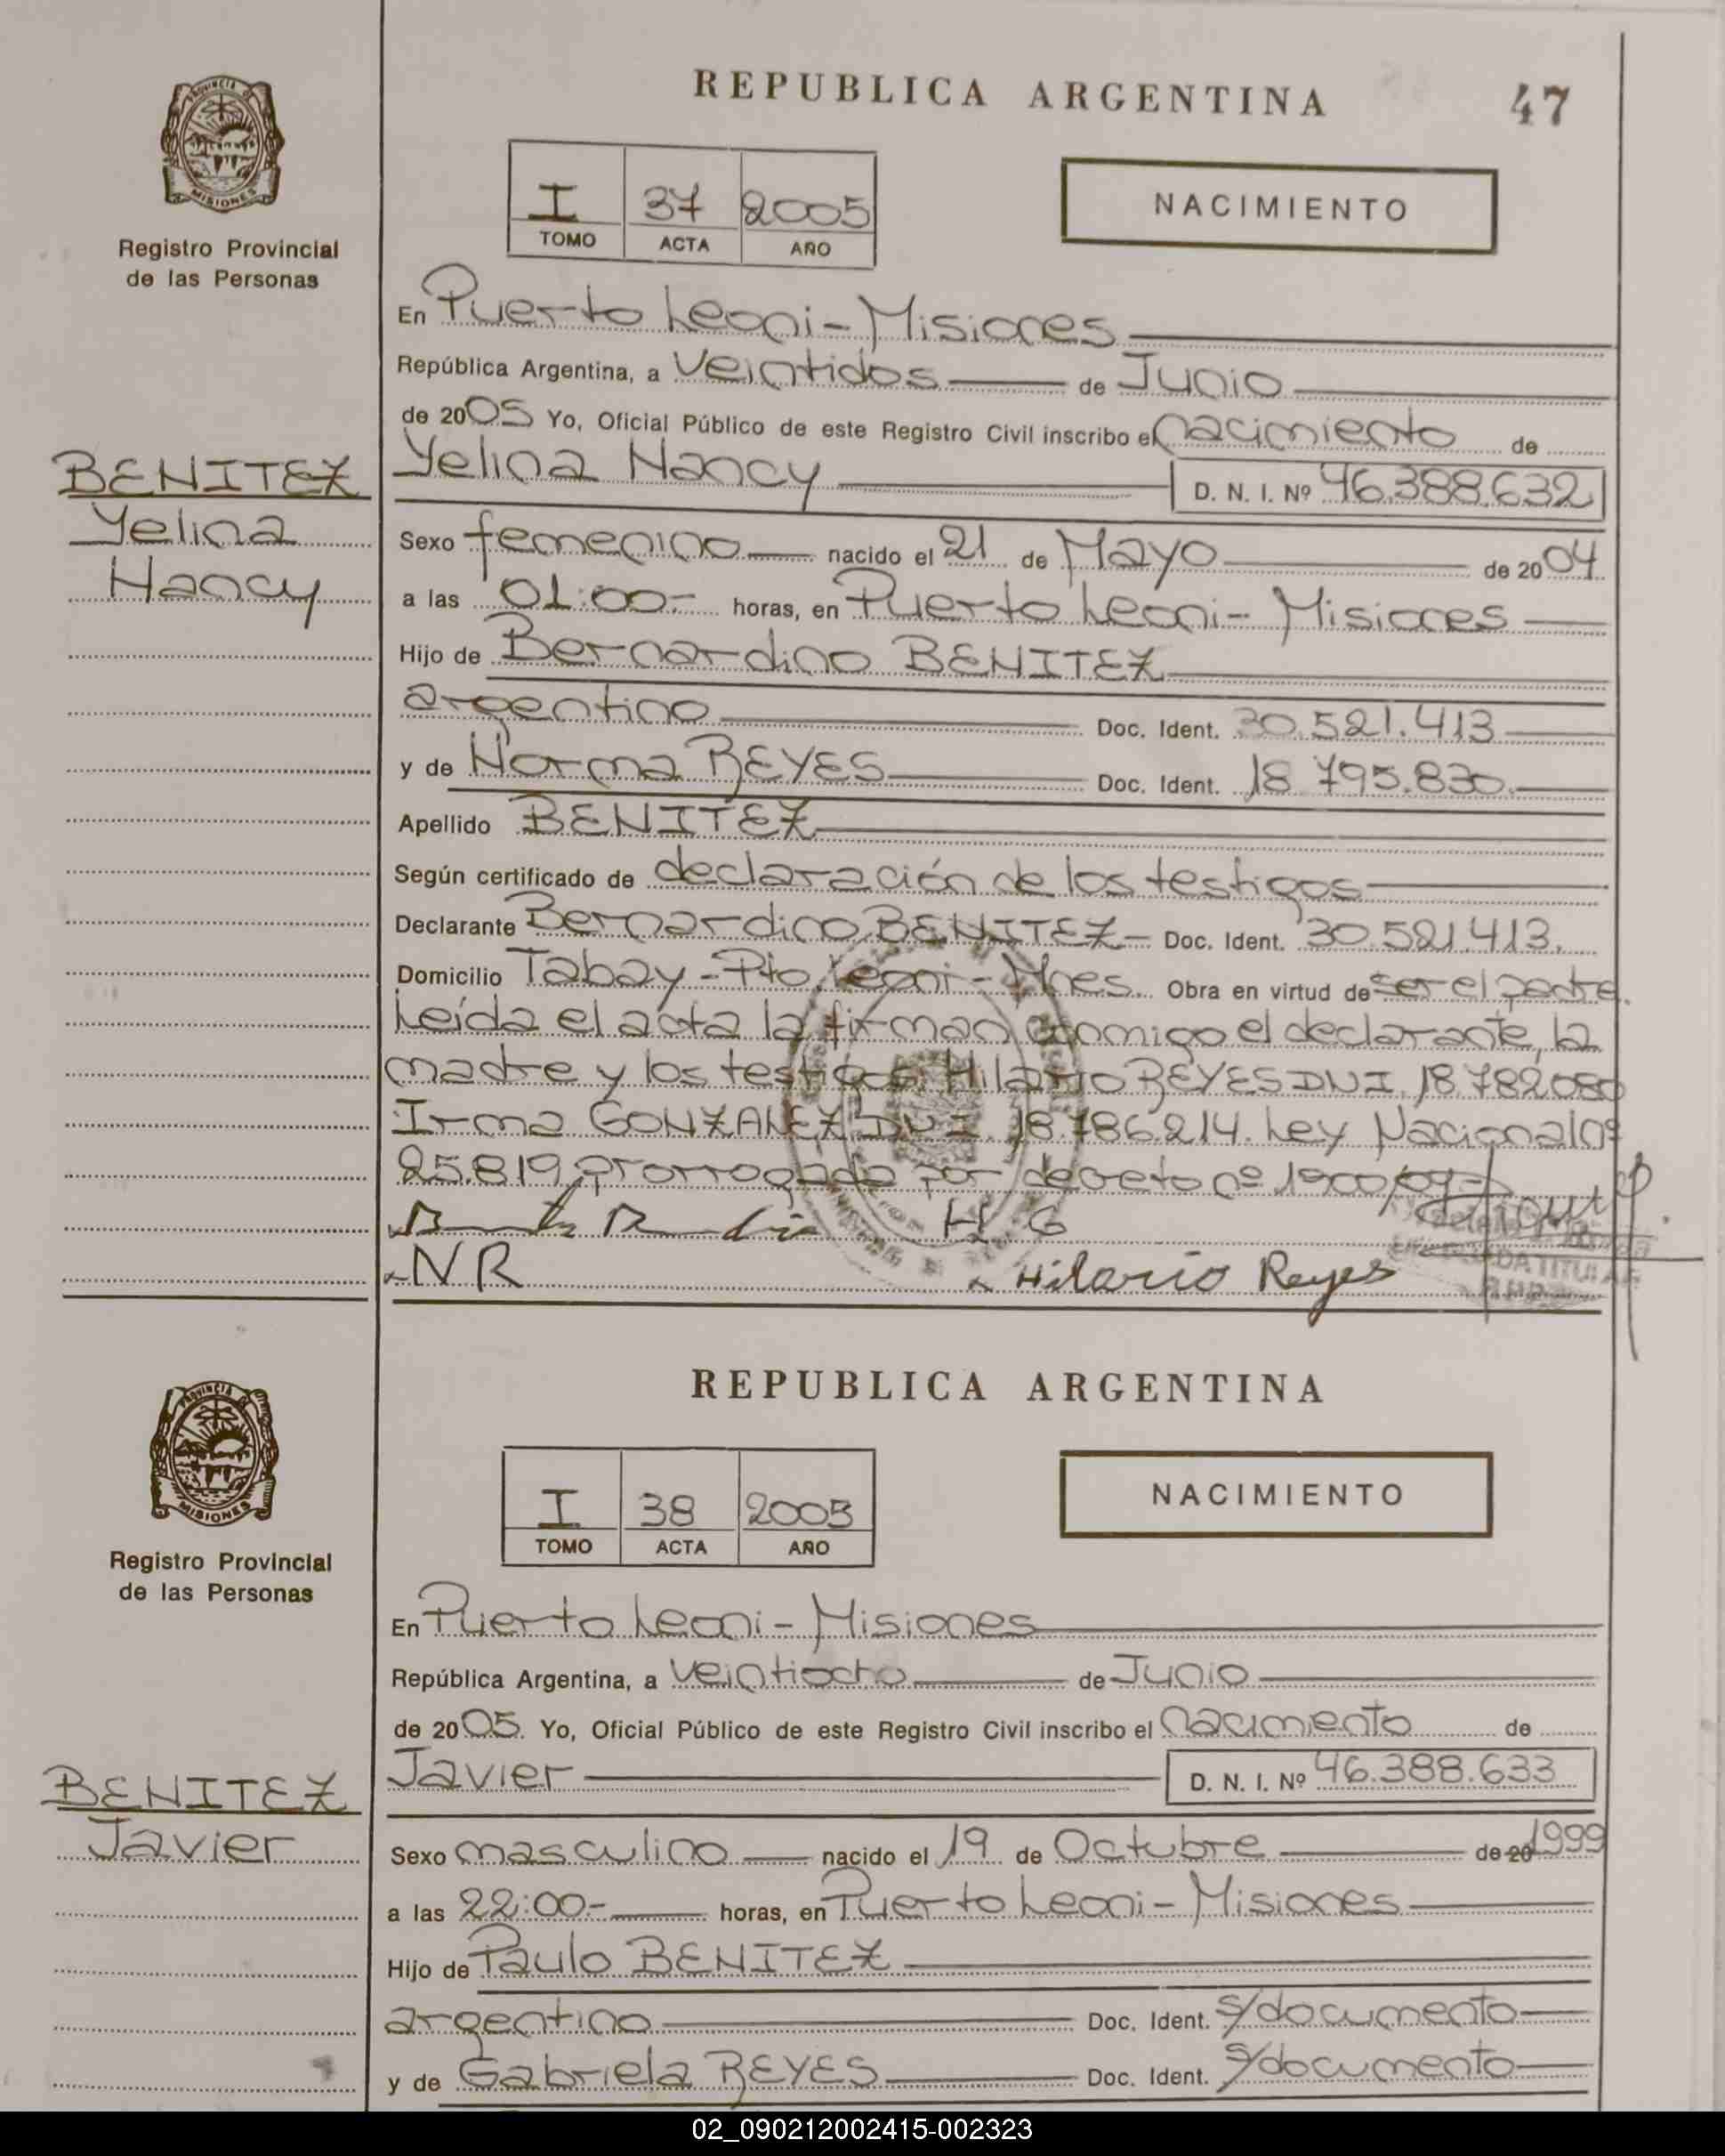 REPUBLICA ARGENTINA
47
PROVINCIA DE
MISIONES
Registro Provincial
de las Personas
I 37 2005
TOMO ACTA AÑO
NACIMIENTO
En Puerto Leoni - Misiones
República Argentina, a veintidos de Junio
de 2005 Yo, Oficial Público de este Registro Civil inscribo el nacimiento de
BENITEZ
Yelina
Nancy
Yelina Nancy D. N. I. Nº 46.388.632
Sexo femenino nacido el 21 de Mayo de 2004
a las 01:00- horas, en Puerto Leoni - Misiones
Hijo de Bernardino BENITEZ
argentino Doc. Ident. 30.521.413
y de Norma REYES Doc. Ident. 18.795.830.
Apellido BENITEZ
Según certificado de declaración de los testigos
Declarante Bernardino BENITEZ - Doc. Ident. 30.521.413.
Domicilio Tabay - Pto. Leoni - Mnes. Obra en virtud de ser el padre.
Leída el acta la firman conmigo el declarante, la
madre y los testigos Hilario REYES DNI. 18.782.080
Irma GONZALEZ DNI. 18.786.214. Ley Nacional nº
25.819 prorrogada por decreto nº 1900/04-
H G
NR Hilario Reyes
DA TITULAR
REPUBLICA ARGENTINA
PROVINCIA DE
MISIONES
Registro Provincial
de las Personas
I 38 2005
TOMO ACTA AÑO
NACIMIENTO
En Puerto Leoni - Misiones
República Argentina, a veintiocho de Junio
de 2005. Yo, Oficial Público de este Registro Civil inscribo el nacimento de
BENITEZ
Javier
Javier D. N. I. Nº 46.388.633
Sexo masculino nacido el 19 de Octubre de 20 1999
a las 22:00- horas, en Puerto Leoni - Misiones
Hijo de Paulo BENITEZ
argentino Doc. Ident. s/documento
y de Gabriela REYES Doc. Ident. s/documento
02_090212002415-002323